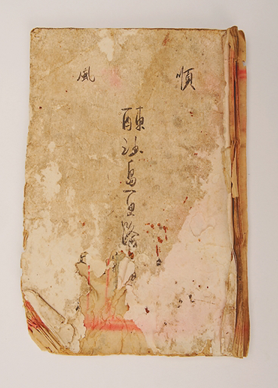 順風
東西沙島更